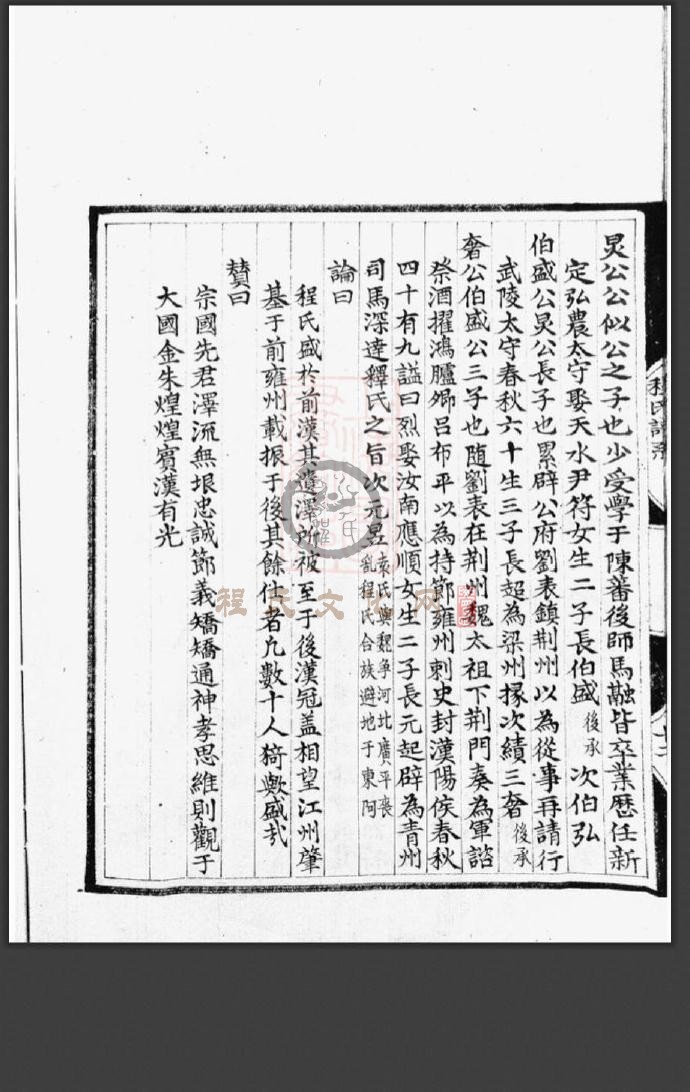 炅公公似公之子也少受學于陳蕃後師馬融皆卒業歷任新
定弘農太守娶天水尹符女生二子長伯盛後承次伯弘
伯盛公炅公長子也累辟公府劉表鎮荆州以為從事再請行
武陵太守春秋六十生三子長超為梁州掾次績三奢後承
奢公伯盛公三子也随劉表在荆州魏太祖下荆門奏為軍諮
祭酒擢鴻臚卿吕布平以為持節雍州刺史封漢陽侯春秋
四十有九謚曰烈娶汝南應順女生二子長元起辟為青州
司馬深達釋氏之旨次元昱袁氏與魏争河北廣平喪亂程氏合族避地于東阿
論曰
程氏盛於前漢其遺澤所被至于後漢冠盖相望江州肇
基于前雍州載振于後其餘仕者凡數十人猗歟盛哉
賛曰
宗國先君澤流無垠忠誠節義矯矯通神孝思維則觀于
大國金朱煌煌賓漢有光
程氏文化网